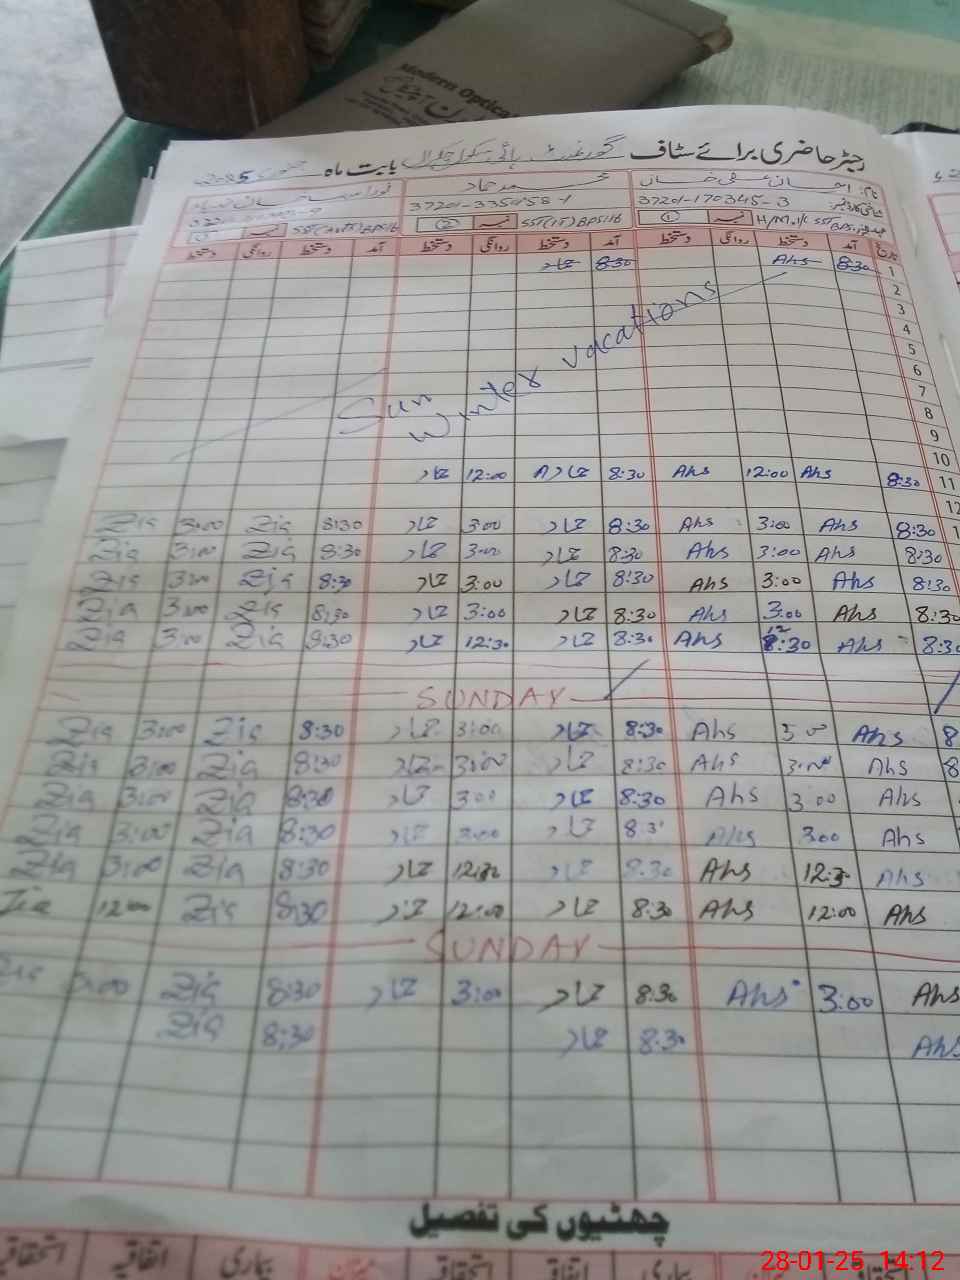 Modern Optica
رجسٹر حاضری برائے سٹاف گورنمنٹ ہائی سکول چکرال بابت ماہ جنوری 2025
نام: احسان علی خان محمد حماد
شناختی کارڈ نمبر 37201-170345-3 37201-3350158-1
H/M.I/C SST BPS: ① SST(IT) BPS:16 ② BPS:16
تاریخ آمد دستخط روانگی دستخط آمد دستخط روانگی دستخط آمد دستخط روانگی دستخط
1 8:30 Ahs 8:30 حماد
2
3
4
5
6
7
8
9
10
Winter vacations
Sun
11 8:30 Ahs 12:00 Ahs 8:30 حماد 12:00 حماد
12
8:30 Ahs 3:00 Ahs 8:30 حماد 3:00 حماد 8:30 Zia 3:00 Zia
8:30 Ahs 3:00 Ahs 8:30 حماد 3:00 حماد 8:30 Zia 3:00 Zia
8:30 Ahs 3:00 Ahs 8:30 حماد 3:00 حماد 8:30 Zia 3:00 Zia
8:30 Ahs 3:00 Ahs 8:30 حماد 3:00 حماد 8:30 Zia 3:00 Zia
8:30 Ahs 12:30 Ahs 8:30 حماد 12:30 حماد 8:30 Zia 3:00 Zia
SUNDAY
8 Ahs 3:00 Ahs 8:30 حماد 3:00 حماد 8:30 Zia 3:00 Zia
8 Ahs 3:00 Ahs 8:30 حماد 3:00 حماد 8:30 Zia 3:00 Zia
Ahs 3:00 Ahs 8:30 حماد 3:00 حماد 8:30 Zia 3:00 Zia
Ahs 3:00 Ahs 8:30 حماد 3:00 حماد 8:30 Zia 3:00 Zia
Ahs 12:30 Ahs 8:30 حماد 12:30 حماد 8:30 Zia 3:00 Zia
Ahs 12:00 Ahs 8:30 حماد 12:00 حماد 8:30 Zia 12:00 Zia
SUNDAY
Ahs 3:00 Ahs 8:30 حماد 3:00 حماد 8:30 Zia 3:00 Zia
Ahs 8:30 حماد 8:30 Zia
چھٹیوں کی تفصیل
استحقاقیہ اتفاقیہ بیماری استحقاقیہ اتفاقیہ بیماری استحقاقیہ
28-01-25 14:12